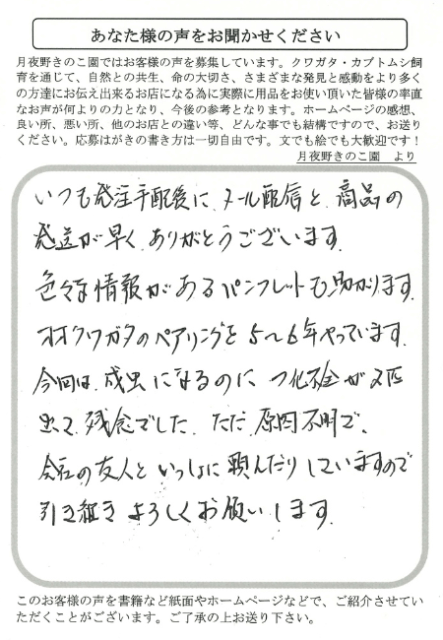 あなた様の声をお聞かせください
月夜野きのこ園ではお客様の声を募集しています。クワガタ・カブトムシ飼
育を通じて、自然との共生、命の大切さ、さまざまな発見と感動をより多く
の方達にお伝え出来るお店になる為に実際に用品をお使い頂いた皆様の率直
なお声が何よりの力となり、今後の参考となります。ホームページの感想、
良い所、悪い所、他のお店との違い等、どんな事でも結構ですので、お送り
ください。応募はがきの書き方は一切自由です。文でも絵でも大歓迎です！
月夜野きのこ園　より
いつも発注手配後に、メール配信と、商品の
発送が早く、ありがとうございます。
色々な情報があるパンフレットも助かります。
オオクワガタのペアリングを5〜6年やっています。
今回は、成虫になるのに、羽化不全が2匹
出て、残念でした。ただ、原因不明で、
会社の友人といっしょに頼んだりしていますので
引き継きよろしくお願いします。
このお客様の声を書籍など紙面やホームページなどで、ご紹介させてい
ただくことがございます。ご了承の上お送り下さい。